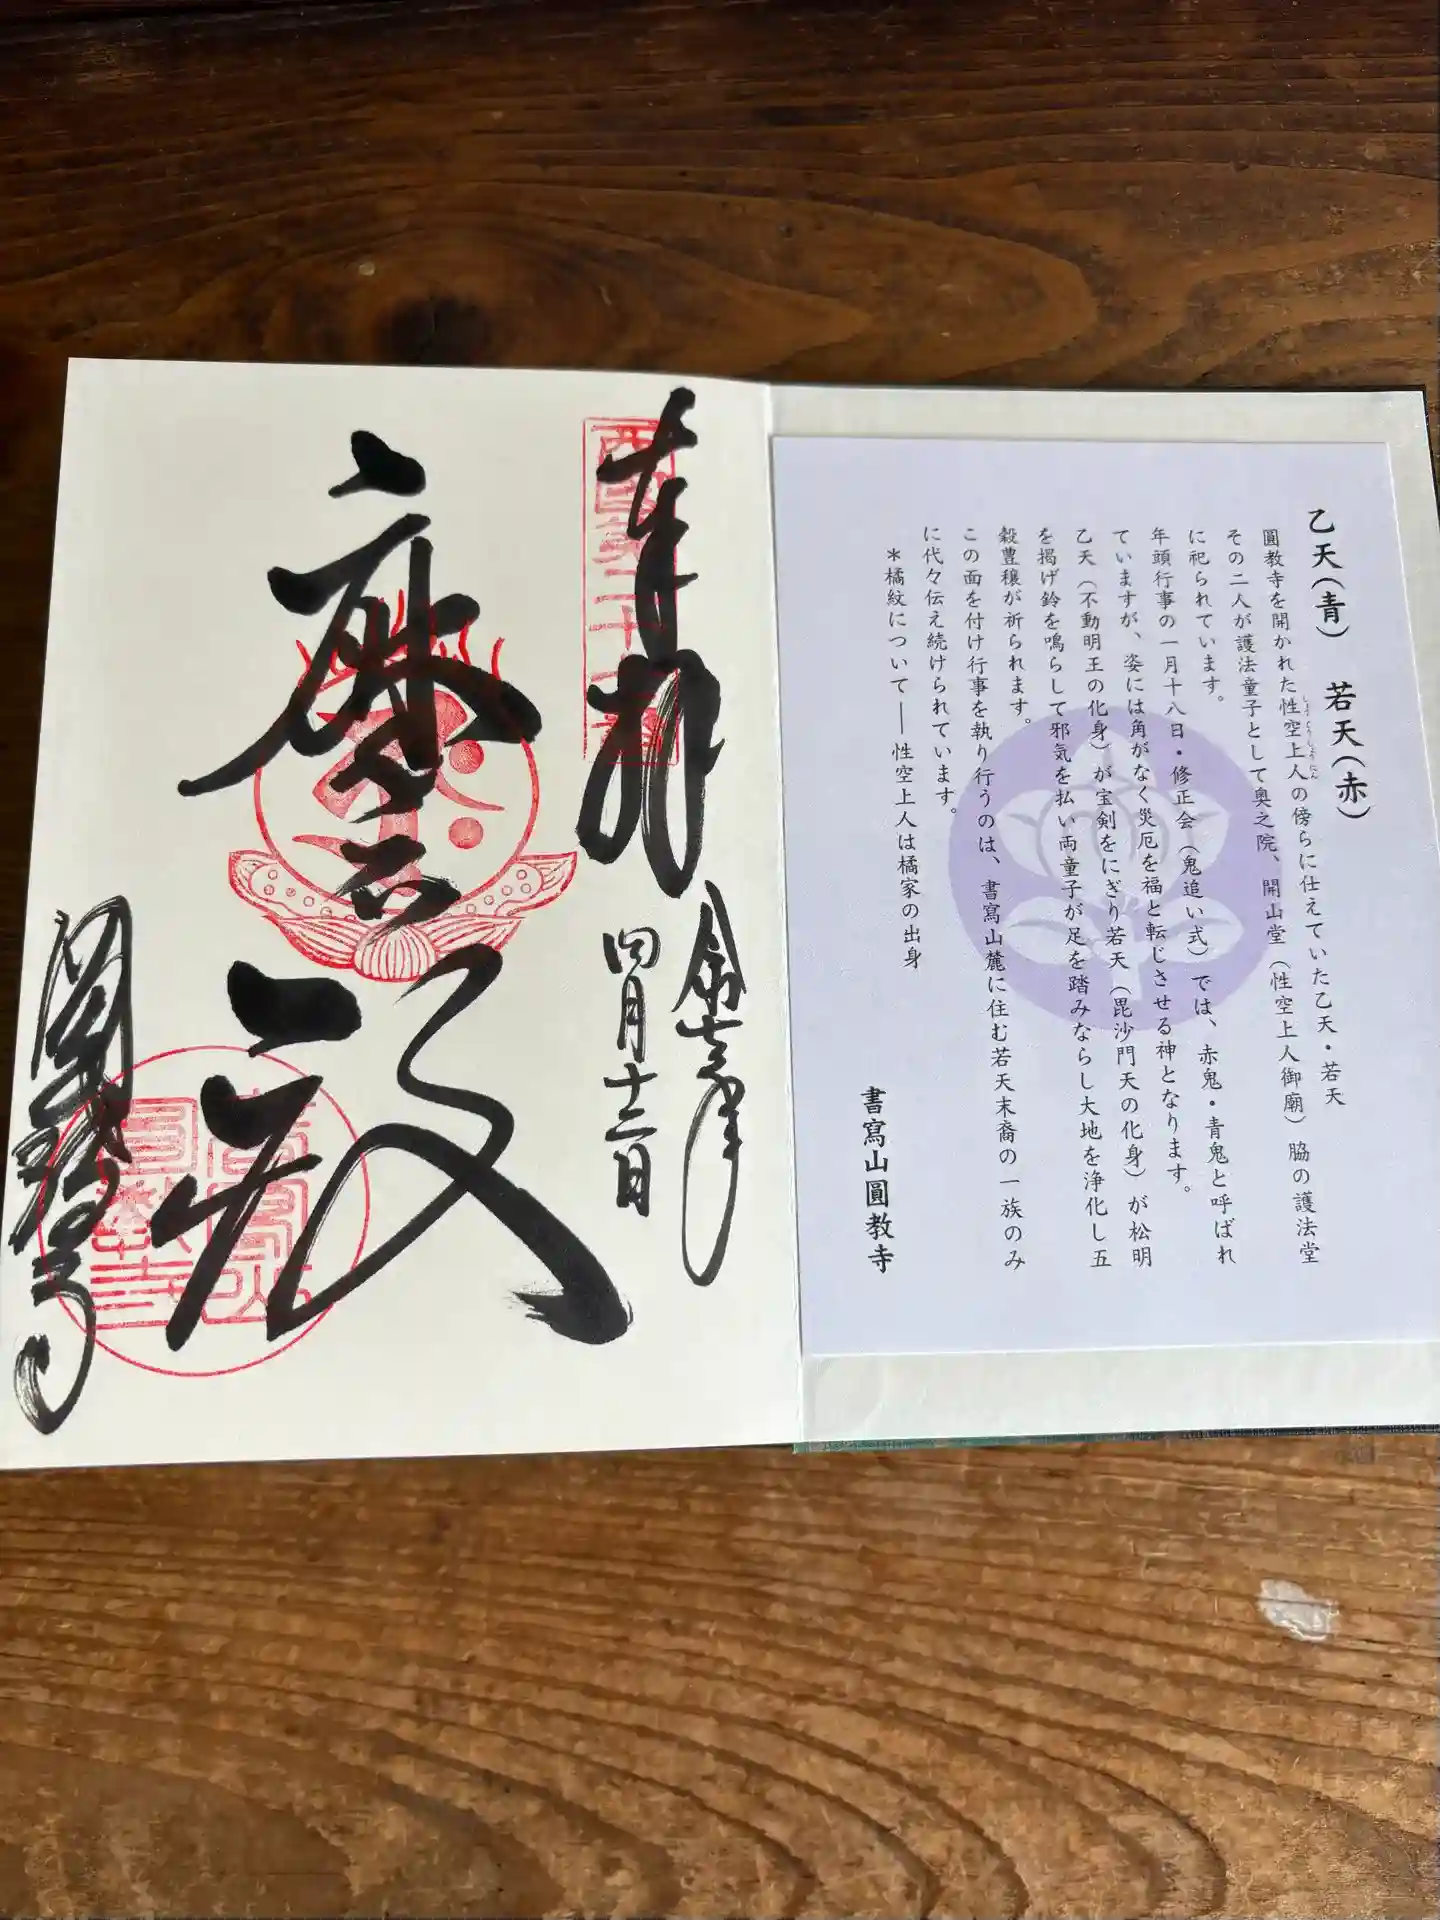 乙天(青)　若天(赤)
圓教寺を開かれた性空上人の傍らに仕えていた乙天・若天
しょうくうしょうにん
その二人が護法童子として奥之院、開山堂(性空上人御廟)脇の護法堂
に祀られています。
年頭行事の一月十八日・修正会(鬼追い式)では、赤鬼・青鬼と呼ばれ
ていますが、姿には角がなく災厄を福と転じさせる神となります。
乙天(不動明王の化身)が宝剣をにぎり若天(毘沙門天の化身)が松明
を掲げ鈴を鳴らして邪気を払い両童子が足を踏みならし大地を浄化し五
穀豊穣が祈られます。
この面を付け行事を執り行うのは、書寫山麓に住む若天末裔の一族のみ
に代々伝え続けられています。
＊橘紋について――性空上人は橘家の出身
書寫山圓教寺
奉拝
西國第二十七番
令和七年
四月十二日
摩尼殿
圓教寺
書寫山
圓教寺